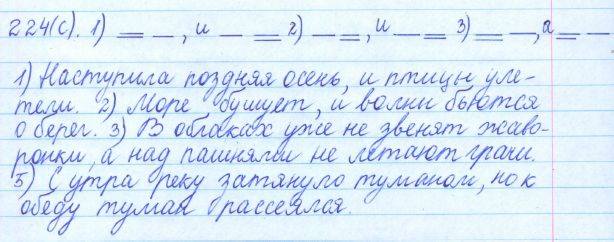 224(с). 1) = –, и – = 2) – =, и – = 3) = –, а = –
1) Наступила поздняя осень, и птицы уле-
тели. 2) Море бушует, и волны бьются
о берег. 3) В облаках уже не звенят жаво-
ронки, а над пашнями не летают грачи.
5) С утра реку затянуло туманом, но к
обеду туман рассеялся.